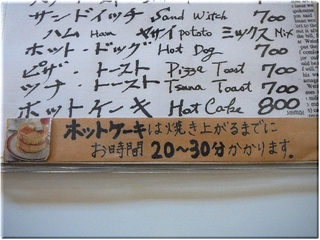 サンドイッチ Sand Witch 700
ハム Ham ヤサイ potato ミックス Mix
ホット・ドッグ Hot Dog 700
ピザ・トースト Pizza Toast 700
ツナ・トースト Tsuna Toast 700
ホットケーキ Hot Cake 800
ホットケーキは焼き上がるまでに
お時間 20〜30分かかります。